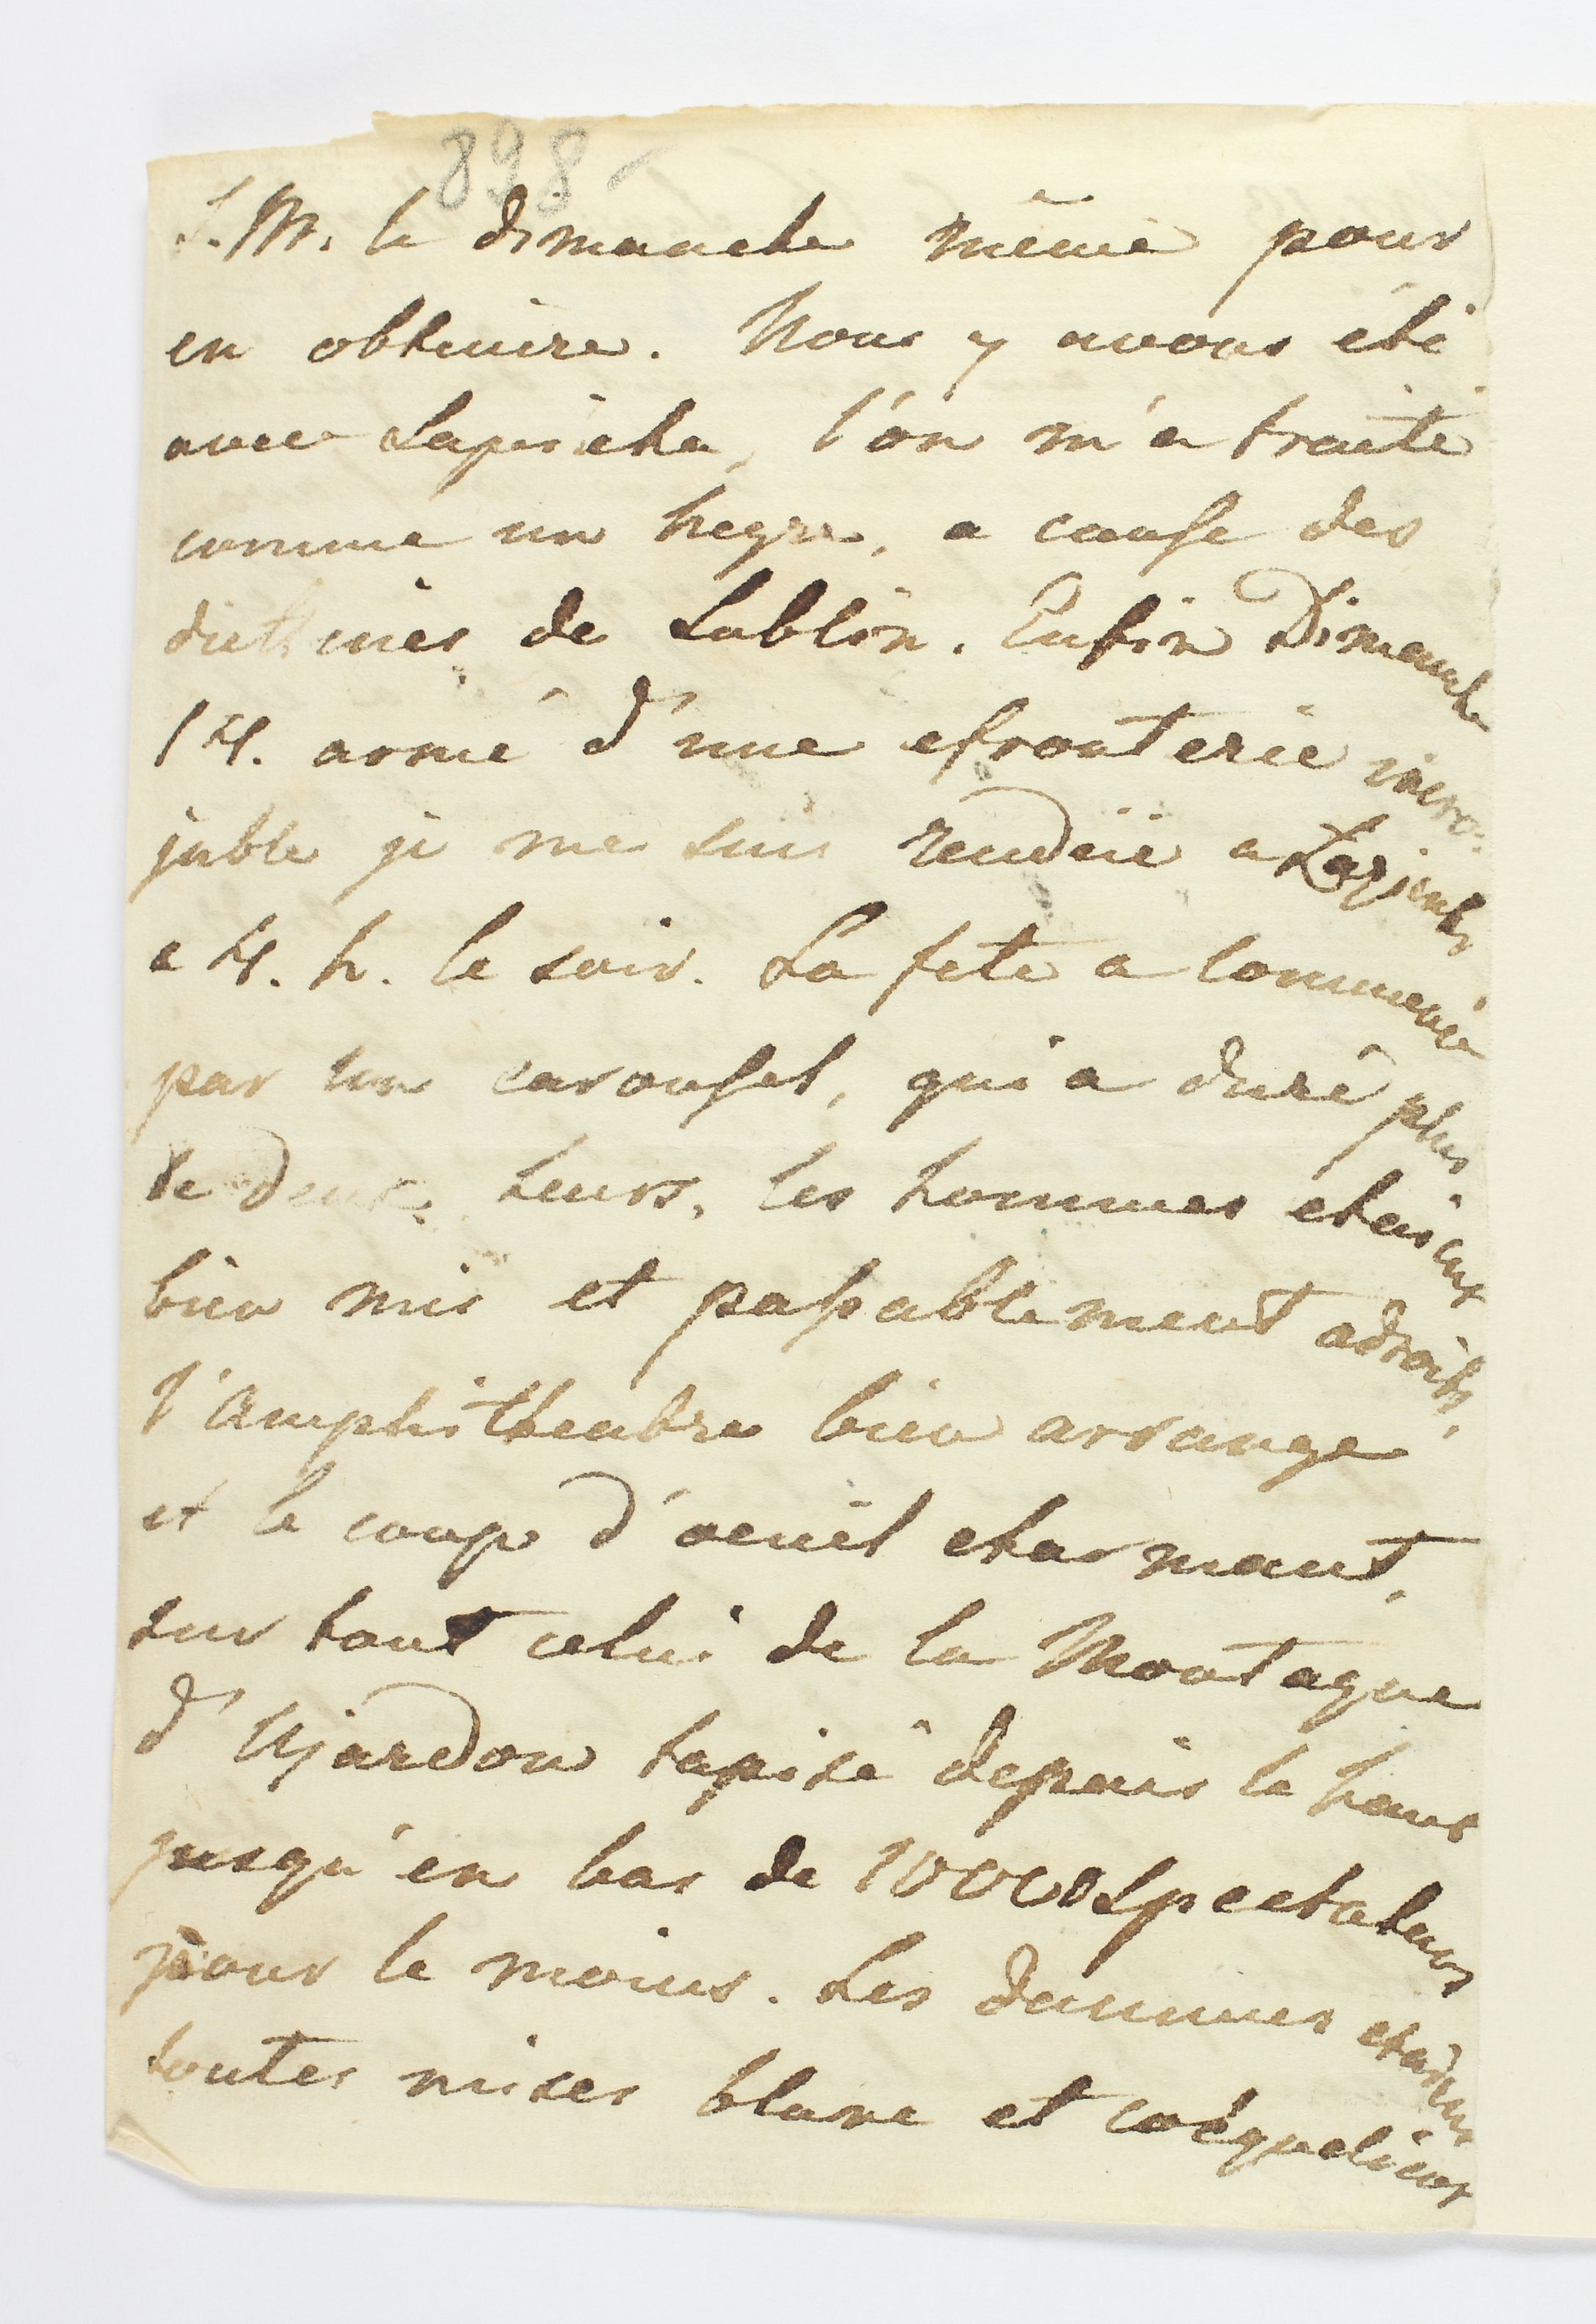 898
S. M. le dimanche même pour
en obtenire. Nous y avons été
avec Sapieha, l'on m'a traité
comme un negre, a cause des
de Lublin. Enfin Dimanche
14. armé d'une efronterie incro:
jable je me suis rendüe a Lazienki
a 4. h. le soir. La fete a commencé
par un carousel, qui a duré plus
de deux heurs, les hommes etaient
bien mis et passablement adroits,
l'Amphitheatre bien arrangé
et le coup d'oeuil charmant,
sur tout celui de la Montagne
d'Ujazdow tapisé depuis le haut
jusqu'en bas de 10000 Spectateurs
pour le moins. Les dammes etaient
toutes mises blanc et coequelicot